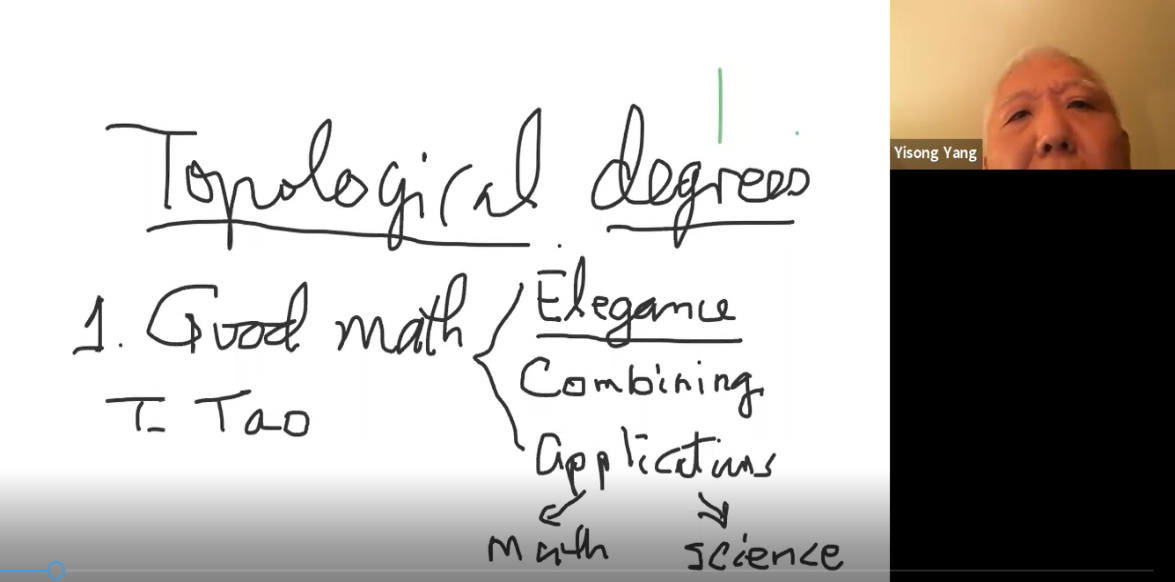 Topological degrees
1. Good math
Elegance
Combining
Applications
T. Tao
math science
Yisong Yang